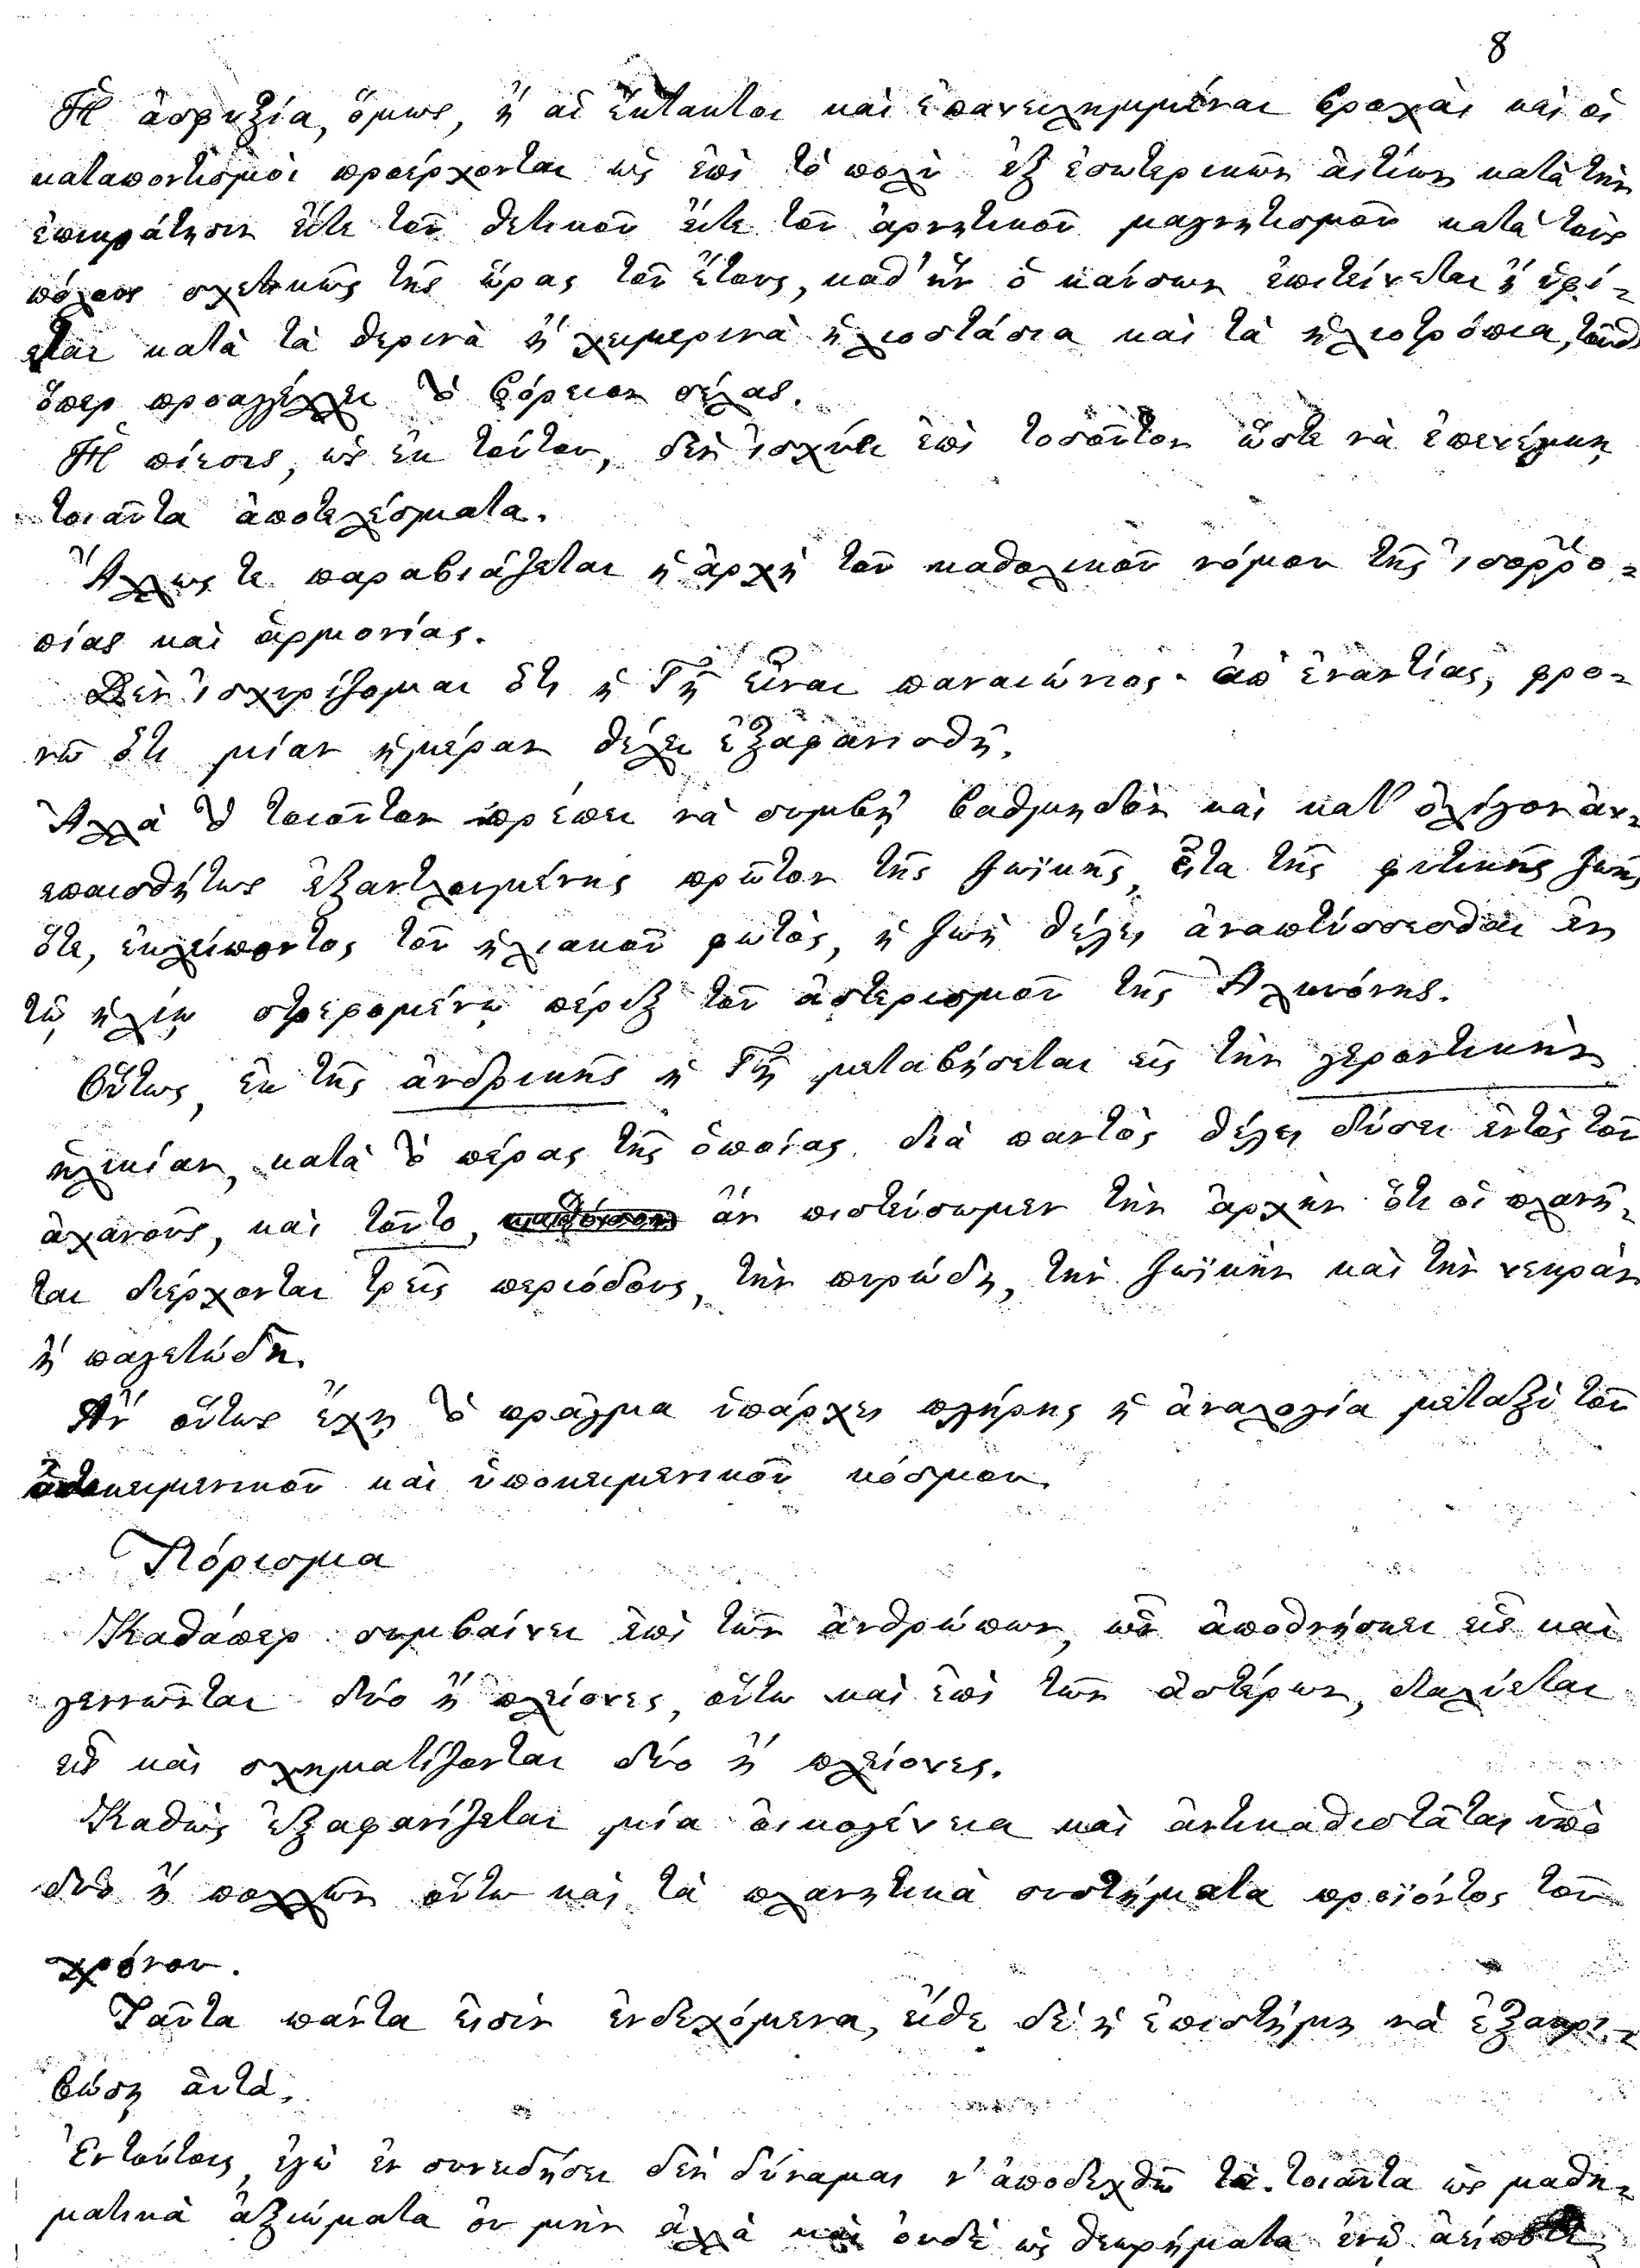 8
Ἡ ἀσφυξία, ὅμως, ἢ αἱ ἔκτακτοι καὶ ἐπανειλημμέναι βροχαὶ καὶ οἱ
καταποντισμοὶ προέρχονται ὡς ἐπὶ τὸ πολὺ ἐξ ἐσωτερικῶν αἰτίων κατὰ τὴν
ἐπικράτησιν εἴτε τοῦ θετικοῦ εἴτε τοῦ ἀρνητικοῦ μαγνητισμοῦ κατὰ τοὺς
πόλους σχετικῶς τῆς ὥρας τοῦ ἔτους, καθ' ἣν ὁ καύσων ἐπιτείνεται ἢ ὑφί-
εται κατὰ τὰ θερινὰ ἢ χειμερινὰ ἡλιοστάσια καὶ τὰ ἡλιοτρόπια,
ὅπερ προαγγέλλει τὸ βόρειον σέλας.
Ἡ πίεσις, ὡς ἐκ τούτου, δὲν ἰσχύει ἐπὶ τοσοῦτον ὥστε νὰ ἐπενέγκῃ
τοιαῦτα ἀποτελέσματα.
Ἄλλως τε παραβιάζεται ἡ ἀρχὴ τοῦ καθολικοῦ νόμου τῆς ἰσορρο-
πίας καὶ ἁρμονίας.
Δὲν ἰσχυρίζομαι ὅτι ἡ Γῆ εἶναι παναιώνιος· ἀπ' ἐναντίας, φρο-
νῶ ὅτι μίαν ἡμέραν θέλει ἐξαφανισθῆ.
Ἀλλὰ τὸ τοιοῦτον πρέπει νὰ συμβῇ βαθμηδὸν καὶ κατ' ὀλίγον ἀν-
επαισθήτως ἐξαντλουμένης πρῶτον τῆς ζωϊκῆς, εἶτα τῆς φυτικῆς ζωῆς
ὅτε, ἐκλείποντος τοῦ ἡλιακοῦ φωτὸς, ἡ ζωὴ θέλει ἀναπτύσσεσθαι ἐν
τῷ ἡλίῳ στρεφομένῳ πέριξ τοῦ ἀστερισμοῦ τῆς Ἀλκυόνης.
Οὕτως, ἐκ τῆς ἀνδρικῆς ἡ Γῆ μεταβήσεται εἰς τὴν γεροντικὴν
ἡλικίαν, κατὰ τὸ πέρας τῆς ὁποίας διὰ παντὸς θέλει δύσει ἐντὸς τοῦ
ἀχανοῦς, καὶ τοῦτο, ἂν πιστεύσωμεν τὴν ἀρχὴν ὅτι οἱ πλανῆ-
ται διέρχονται τρεῖς περιόδους, τὴν πυρώδη, τὴν ζωϊκὴν καὶ τὴν νεκρὰν
ἢ παγετώδη.
Ἂν οὕτως ἔχῃ τὸ πρᾶγμα ὑπάρχει πλήρης ἡ ἀναλογία μεταξὺ τοῦ
ἀντικειμενικοῦ καὶ ὑποκειμενικοῦ κόσμου.
Πόρισμα
Καθάπερ συμβαίνει ἐπὶ τῶν ἀνθρώπων, ὧν ἀποθνήσκει εἷς καὶ
γεννῶνται δύο ἢ πλείονες, οὕτω καὶ ἐπὶ τῶν ἀστέρων, διαλύεται
εἷς καὶ σχηματίζονται δύο ἢ πλείονες.
Καθὼς ἐξαφανίζεται μία οἰκογένεια καὶ ἀντικαθιστᾶται ὑπὸ
δύο ἢ πολλῶν οὕτω καὶ τὰ πλανητικὰ συστήματα προϊόντος τοῦ
χρόνου.
Ταῦτα πάντα εἰσὶν ἐνδεχόμενα, εἴθε δὲ ἡ ἐπιστήμη νὰ ἐξακρι-
βώσῃ αὐτά.
Ἐντούτοις, ἐγὼ ἐν συνειδήσει δὲν δύναμαι ν' ἀποδεχθῶ τὰ τοιαῦτα ὡς μαθη-
ματικὰ ἀξιώματα οὐ μὴν ἀλλὰ καὶ οὐδὲ ὡς θεωρήματα ἐνῷ ἀείποτε